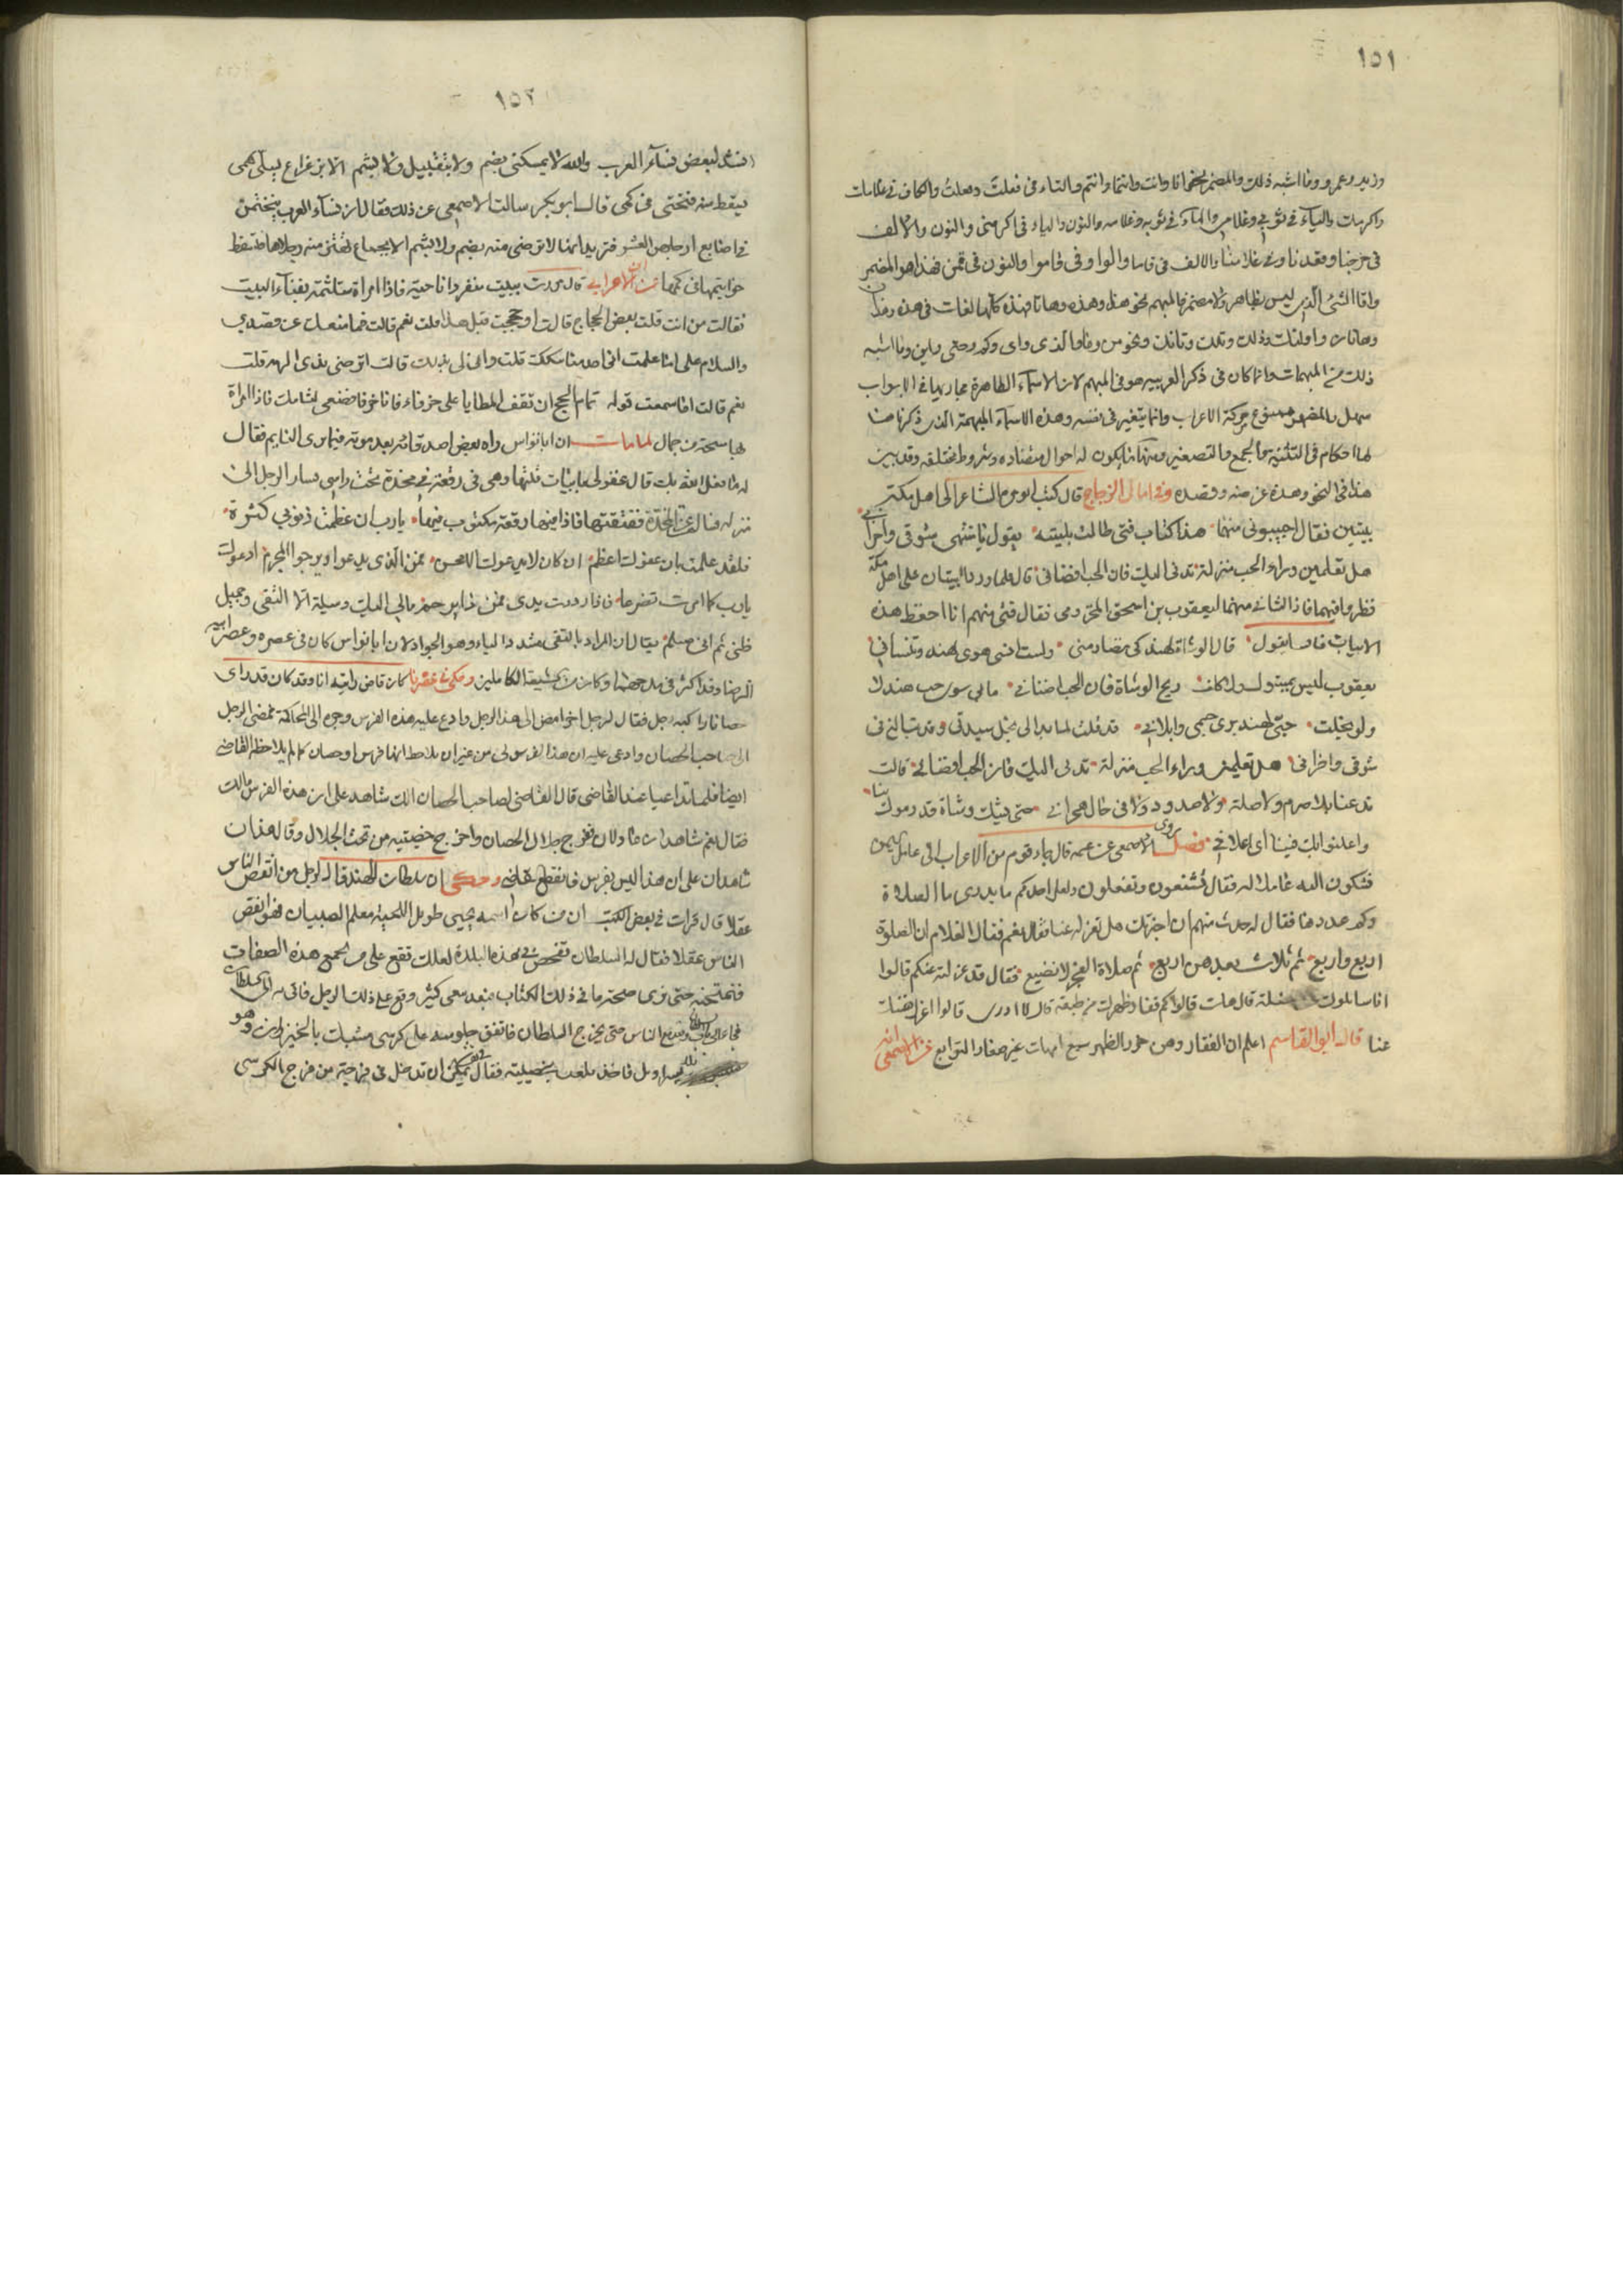 ١٥١
وزيد وعمرو وما اشبه ذلك والمضمر نحو انا وانت وانتما وانتم والتاء في فعلت وفعلت والكاف في غلامك
واكرمك والياء في ثوبي وغلامي والهاء في ثوبه وغلامه والنون والياء في اكرمني والنون والالف
في خرجنا وقعدنا وفي غلامنا والالف في قاما والواو في قاموا والنون في قمن فهذا هو المضمر
واما الشئ الذي ليس بظاهر ولا مضمر فالمبهم نحو هذا وهذه وهاتا فهذه كلها لغات في هذه وهذان
وهاتان واولئك وذلك وتلك وتانك ونحو من وما والذي واي وكم ومتى واين وما اشبه
ذلك من المبهمات وانما كان في ذكر العربيه هو في المبهم لان الاسماء الظاهرة مجاريها في الابواب
سهل والمضمر ممنوع حركة الاعراب وانما يتغير في نفسه وهذه الاسماء المبهمة الذي ذكرنا هنا
لها احكام في التثنية والجمع والتصغير ومنها ما يكون له احوال متضاده وشروط مختلفه وقد بين
هذا في النحو وهذه عن منه وقصده وفي امالي الزجاج قال كتب الشاعر الى اهل مكة
بيتين فقال اجيبوني منهما هذا كتاب فتى طالت بليته يقول يا مشتهى شوقي واحزاني
هل تعلمين وراء الحب منزلة تدني اليك فان الحب اقصاني قال فلما ورد البيتان على اهل مكة
نظروا فيهما فاذا الثاني منهما ليعقوب بن اسحق المخزومي فقال فتى منهم انا احفظ هذه
الابيات فاوسا يقول قال الوشاة لهند كي تصارمني ولست انسى هوى هند وتنساني
يعقوب ليس بمبتول ولا كلف ويح الوشاة فان الحب اضناني ما بي سوى حب هند لا
ولو بخلت حبي لهند برى جسمي وابلاني قد قلت لما بدا لي بخل سيدتي وقد تبالغ في
شوقي واحزاني هل تعلمين وراء الحب منزلة تدني اليك فان الحب اقصاني قالت
تدعنا بلا صرم ولا صلة ولا صدود ولا في حال هجران حتى يبثك وشاة قد رموك بنا
واعلنوا بك فينا اي اعلان فصل روى الاصمعي عن عمه قال جاء قوم من الاعراب الى عامل اليمن
فشكون اليه عاملا لهم فقال تشنعون وتفعلون ولعل احدكم ما يدري ما الصلاة
وكم عددها فقال له حدث منهم ان اخبرتك هل تعزله عنا فقال نعم فقال الغلام ان الصلوة
اربع واربع ثم ثلاث بعدهن اربع ثم صلاة الفجر لا تضيع فقال قد عزلته عنكم قالوا
انا سائلوك عن مسئلة قال هات قالوا كم فقار ظهرك من طبقة قال لا ادري قالوا اعزل نفسك
عنا قال ابو القاسم اعلم ان الفقار وهن خرز الظهر سبع امهات غير صغار التوابع عن الاصمعي انه
١٥٢
انشد لبعض نساء العرب والله لا يمسكني بضم ولا بتقبيل ولا بشم الا بزعزاع يسلي همي
يسقط منه فتختي في كمي قال ابو بكر سالت الاصمعي عن ذلك فقال ان نساء العرب يتختمن
في اصابع ارجلهن العشر فتريد انها لا ترضى منه بضم ولا بشم الا بجماع تهتز منه رجلاها فتسقط
خواتيمها في كمها عن ابن الاعرابي قال مررت ببيت منفردا ناحية فاذا امراة متلثمة بفناء البيت
فقالت من انت قلت بعض الحجاج قالت اوحججت قبل هذا قلت نعم قالت فما منعك عن قصدي
والسلام علي اما علمت اني احد مناسكك قلت وانى لي بذلك قالت اترضى بذي الرمة قلت
نعم قالت اما سمعت قوله تمام الحج ان تقف المطايا على خرقاء فانا خرقا فضعي لثامك فاذا المراة
لها مسحة من جمال لما مات ان ابا نواس راه بعض اصدقائه بعد موته فيما يرى النايم فقال
له ما فعل الله بك قال غفر لي بابيات قلتها وهي في رقعة في مخدة تحت راسي فسار الرجل الى
منزله فسال عن المخدة ففتقتها فاذا فيها رقعة مكتوب فيها يا رب ان عظمت ذنوبي كثرة
فلقد علمت بان عفوك اعظم ان كان لا يدعوك الا محسن فمن الذي يدعو ويرجو المجرم ادعوك
يا رب كما امرت تضرعا فاذا رددت يدي فمن ذا يرحم ما لي اليك وسيلة الا التقى وجميل
ظني ثم اني مسلم يقال ان المراد بالتقي بتشديد الياء وهو الجواد لان ابا نواس كان في عصره وعصر ابيه
الرضا وقد اكثر في مدحهما وكان من شيعته الكاملين وحكي في عصرنا كان قاض وانه اتا وقد كان قد راى
حصانا راكبه رجل فقال لرجل اخر امض الى هذا الرجل وادع عليه هذه الفرس وجره الى المحاكمة فمضى الرجل
الى صاحب الحصان وادعى عليه ان هذا الفرس لي من غير ان يلاحظ انها فرس او حصان كما لم يلاحظ القاضي
ايضا فلما تداعيا عند القاضي قال القاضي لصاحب الحصان الك شاهد على ان هذه الفرس مالك
فقال نعم شاهدان عادلان فخرج جلال الحصان واخرج خصيتيه من تحت الجلال وقال هذان
شاهدان على ان هذا ليس بفرس فانقطع القاضي وحكي ان سلطان الهند قال لرجل من انقص الناس
عقلا قال قرات في بعض الكتب ان من كان اسمه يحيى طويل اللحية معلم الصبيان فهو انقص
الناس عقلا فقال له السلطان تفحص في هذه البلدة لعلك تقع على من يجمع هذه الصفات
فنمتحنه حتى نرى صحة ما في ذلك الكتاب فبعد سعي كثير وقع على ذلك الرجل فاتى به الى السلطان
فجاء الى الباب ومنع الناس حتى يخرج السلطان فاتفق جلوسه على كرسي مشبك بالخيزران وهو
بلا سراويل فاخذ يلعب بخصيته فقال في نفسه يمكن ان تدخل في فرجة من فرج الكرسي